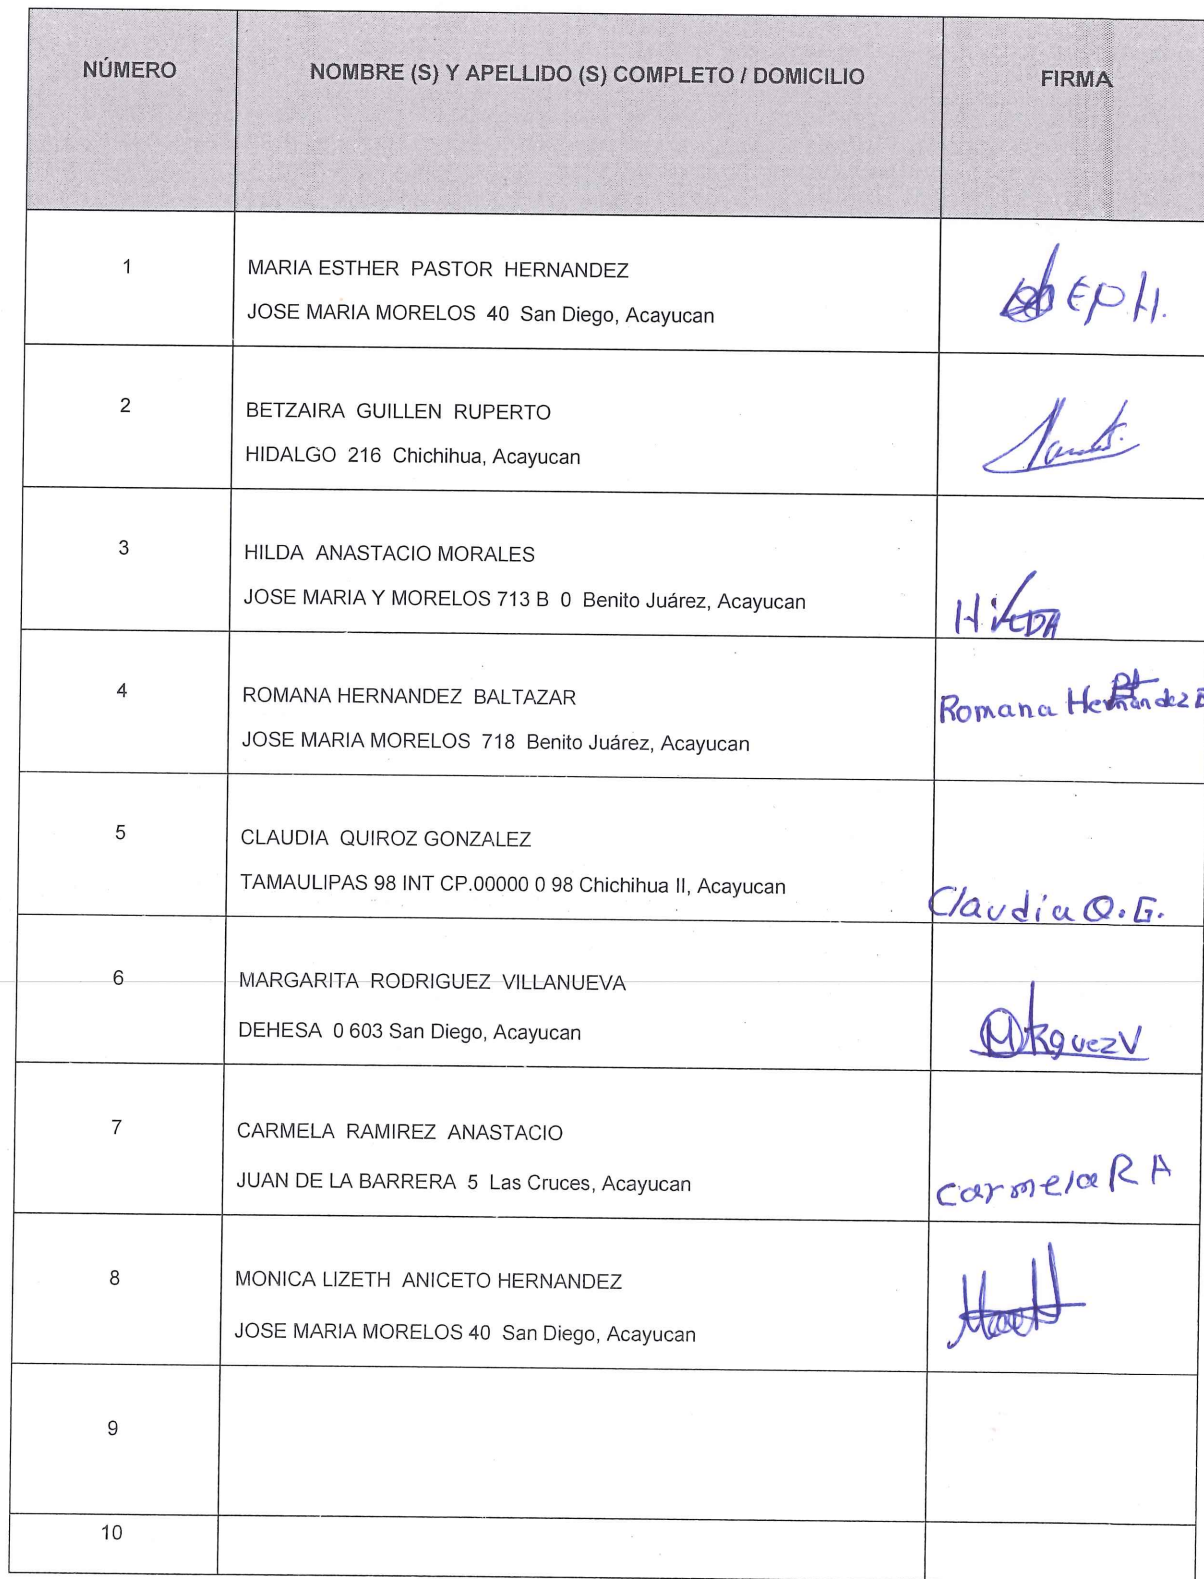 NÚMERO
NOMBRE (S) Y APELLIDO (S) COMPLETO / DOMICILIO
FIRMA
1
MARIA ESTHER PASTOR HERNANDEZ
JOSE MARIA MORELOS 40 San Diego, Acayucan
EPH.
2
BETZAIRA GUILLEN RUPERTO
HIDALGO 216 Chichihua, Acayucan
3
HILDA ANASTACIO MORALES
JOSE MARIA Y MORELOS 713 B 0 Benito Juárez, Acayucan
HiLDA
4
ROMANA HERNANDEZ BALTAZAR
JOSE MARIA MORELOS 718 Benito Juárez, Acayucan
Romana Hernandez B
5
CLAUDIA QUIROZ GONZALEZ
TAMAULIPAS 98 INT CP.00000 0 98 Chichihua II, Acayucan
Claudia Q. G.
6
MARGARITA RODRIGUEZ VILLANUEVA
DEHESA 0 603 San Diego, Acayucan
M Rguez V
7
CARMELA RAMIREZ ANASTACIO
JUAN DE LA BARRERA 5 Las Cruces, Acayucan
Carmela R A
8
MONICA LIZETH ANICETO HERNANDEZ
JOSE MARIA MORELOS 40 San Diego, Acayucan
9
10